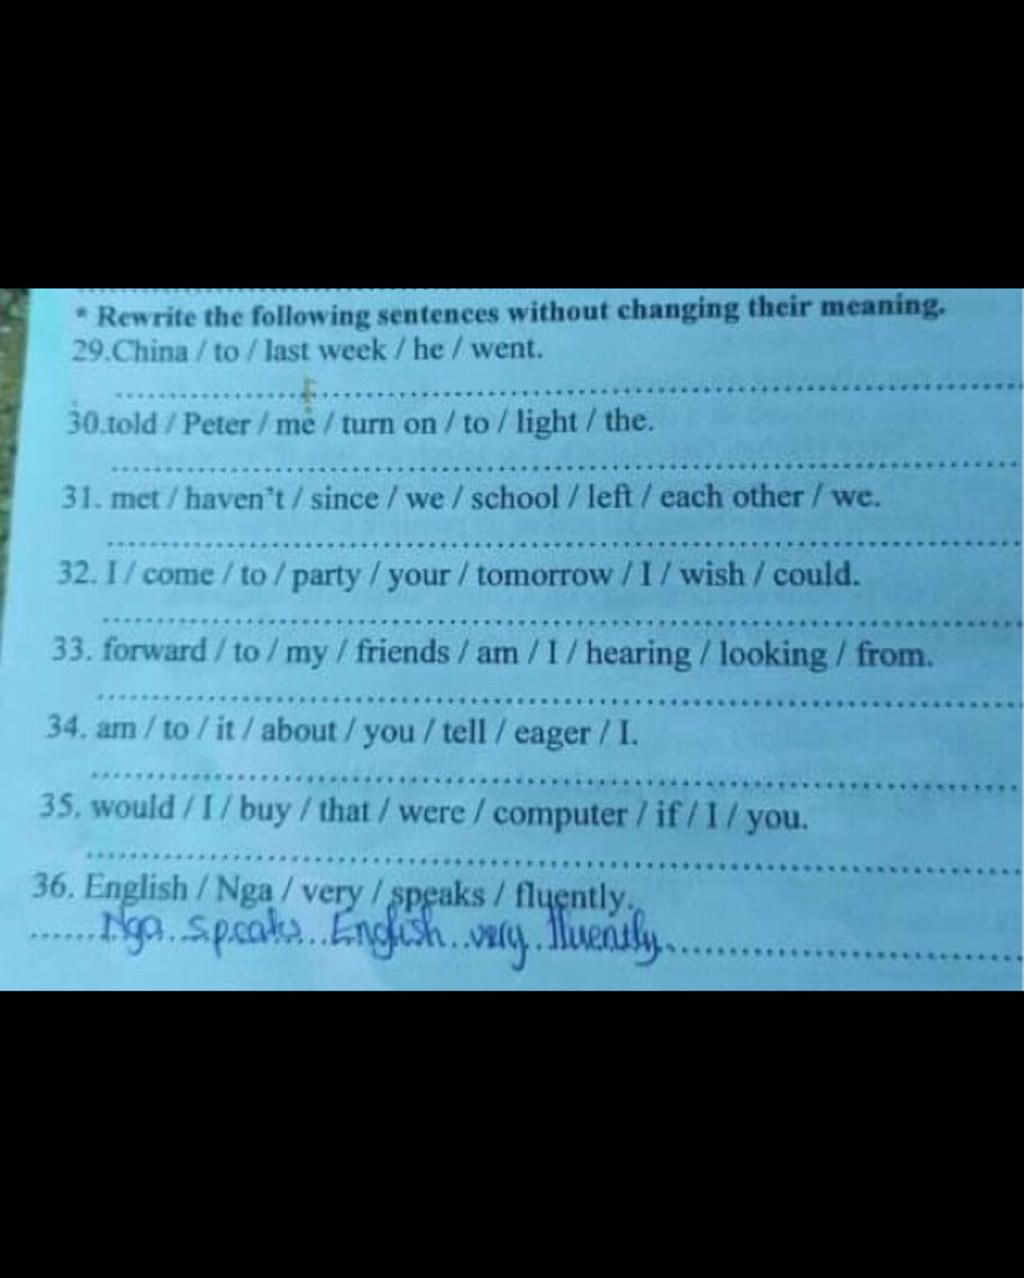 * Rewrite the following sentences without changing their meaning.
29.China / to / last week / he / went.
30.told / Peter / me / turn on / to / light / the.
31. met / haven't / since / we / school / left / each other / we.
32. I / come / to / party / your / tomorrow / I / wish / could.
33. forward / to / my / friends / am / I / hearing / looking / from.
34. am / to / it / about / you / tell / eager / I.
35. would / I / buy / that / were / computer / if / I / you.
36. English / Nga / very / speaks / fluently.
Nga speaks English very fluently.